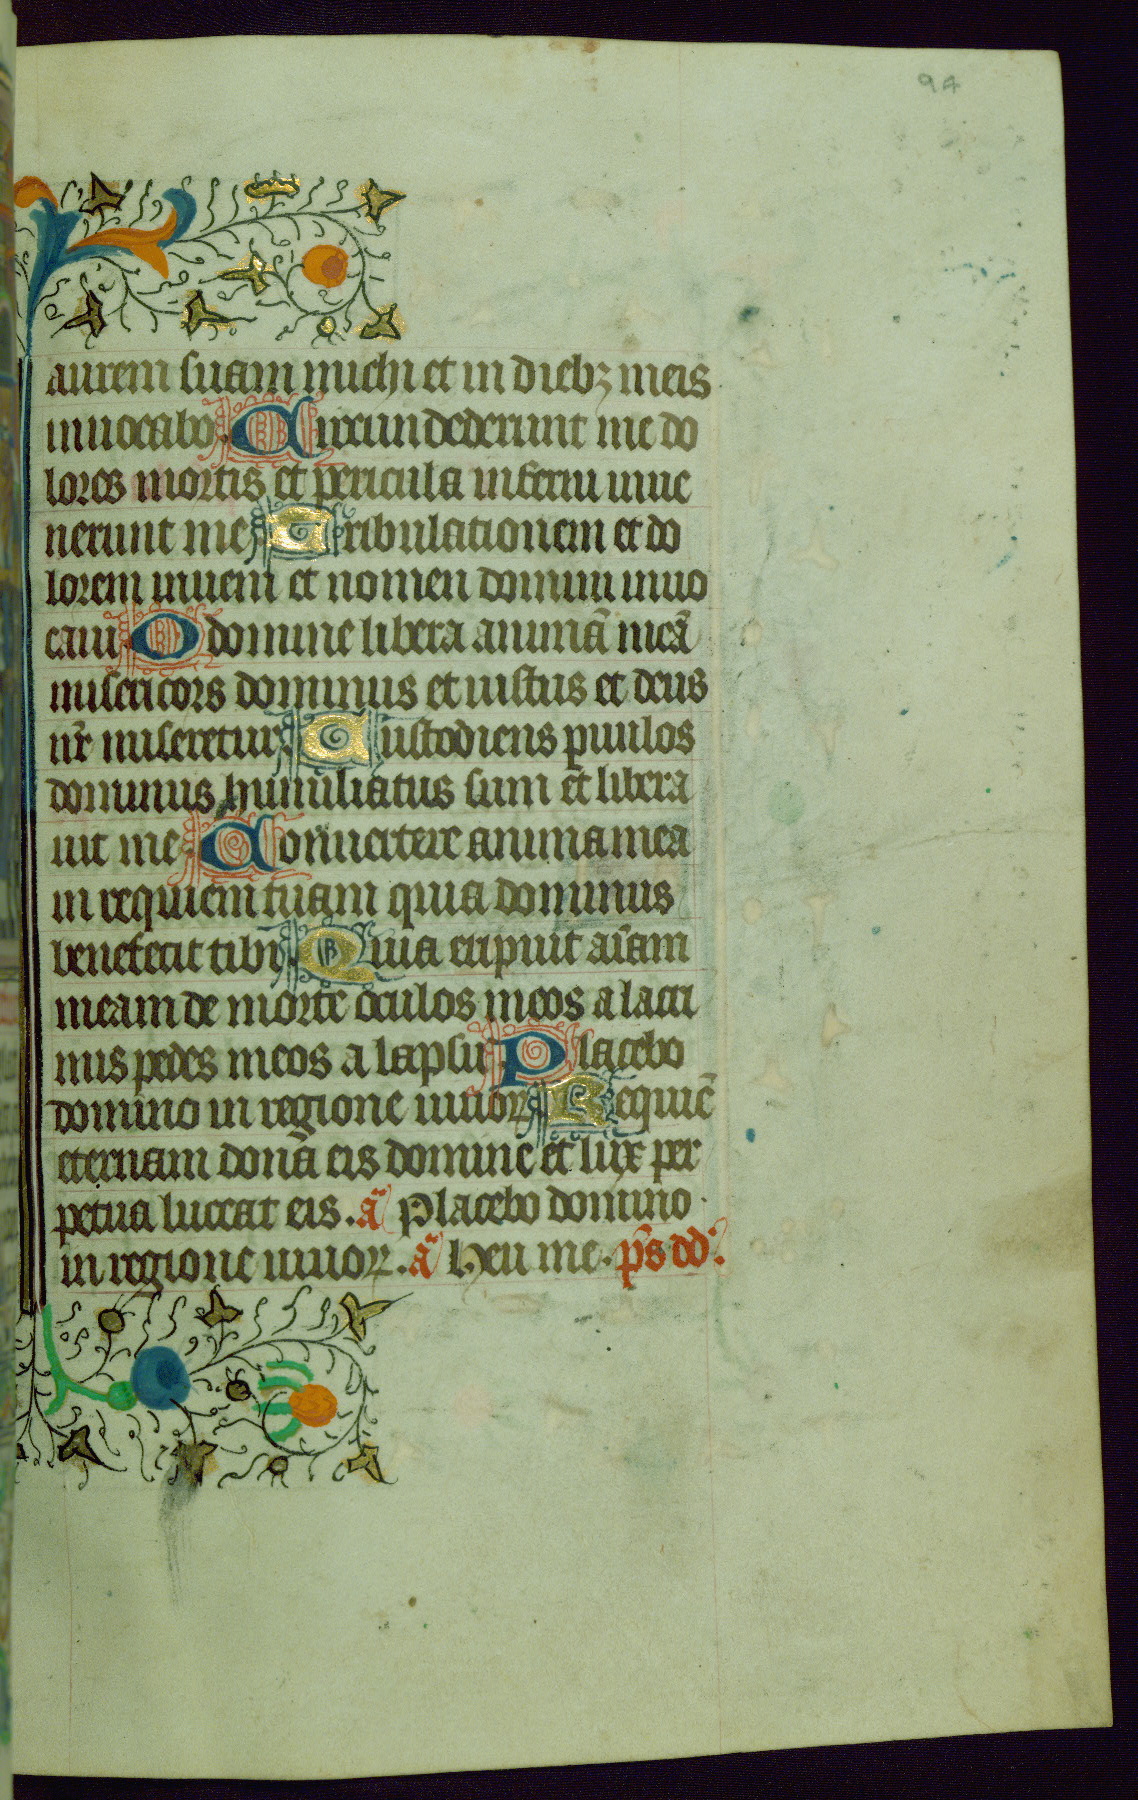 94
aurem suam michi et in diebꝫ meis
inuocabo Circundederunt me do
lores mortis et pericula inferni inue
nerunt me Tribulationem et do
lorem inueni et nomen domini inuo
caui O domine libera animā meā
misericors dominus et iustus et deus
nr̄ miseretur Custodiens ꝑuulos
dominus humiliatus sum et libera
uit me Conuertere anima mea
in requiem tuam quia dominus
benefecit tibi Quia eripuit aīam
meam de morte oculos meos a lacri
mis pedes meos a lapsu Placebo
domino in regione uiuoꝝ Requiē
eternam dona eis domine et lux per
petua luceat eis . a᷒ Placebo domino
in regione uiuoꝝ . a᷒ Heu me . p̄s dd̄.